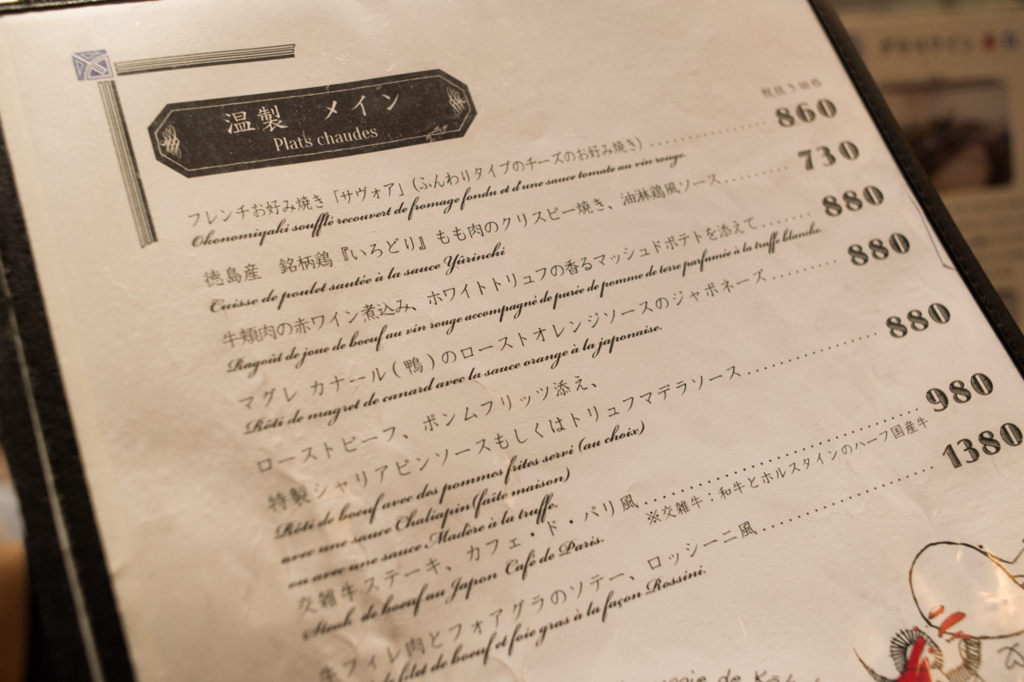 温製 メイン
Plats chaudes
税抜き価格
フレンチお好み焼き「サヴォア」(ふんわりタイプのチーズのお好み焼き) 860
Okonomiyaki soufflé recouvert de fromage fondu et d'une sauce tomate au vin rouge.
徳島産 銘柄鶏『いろどり』もも肉のクリスピー焼き、油淋鶏風ソース 730
Cuisse de poulet sautée à la sauce Yûrinchi
牛頬肉の赤ワイン煮込み、ホワイトトリュフの香るマッシュドポテトを添えて 880
Ragoût de joue de boeuf au vin rouge accompagné de purée de pomme de terre parfumée à la truffe blanche.
マグレ カナール(鴨)のローストオレンジソースのジャポネーズ 880
Rôti de magret de canard avec la sauce orange à la japonaise.
ローストビーフ、ポンムフリッツ添え、
特製シャリアピンソースもしくはトリュフマデラソース 880
Rôti de boeuf avec des pommes frites servi (au choix)
avec une sauce Chaliapin (faite maison)
ou avec une sauce Madère à la truffe.
交雑牛ステーキ、カフェ・ド・パリ風 980
※交雑牛;和牛とホルスタインのハーフ国産牛
Steak de boeuf au Japon Café de Paris.
牛フィレ肉とフォアグラのソテー、ロッシーニ風 1380
filet de boeuf et foie gras à la façon Rossini.